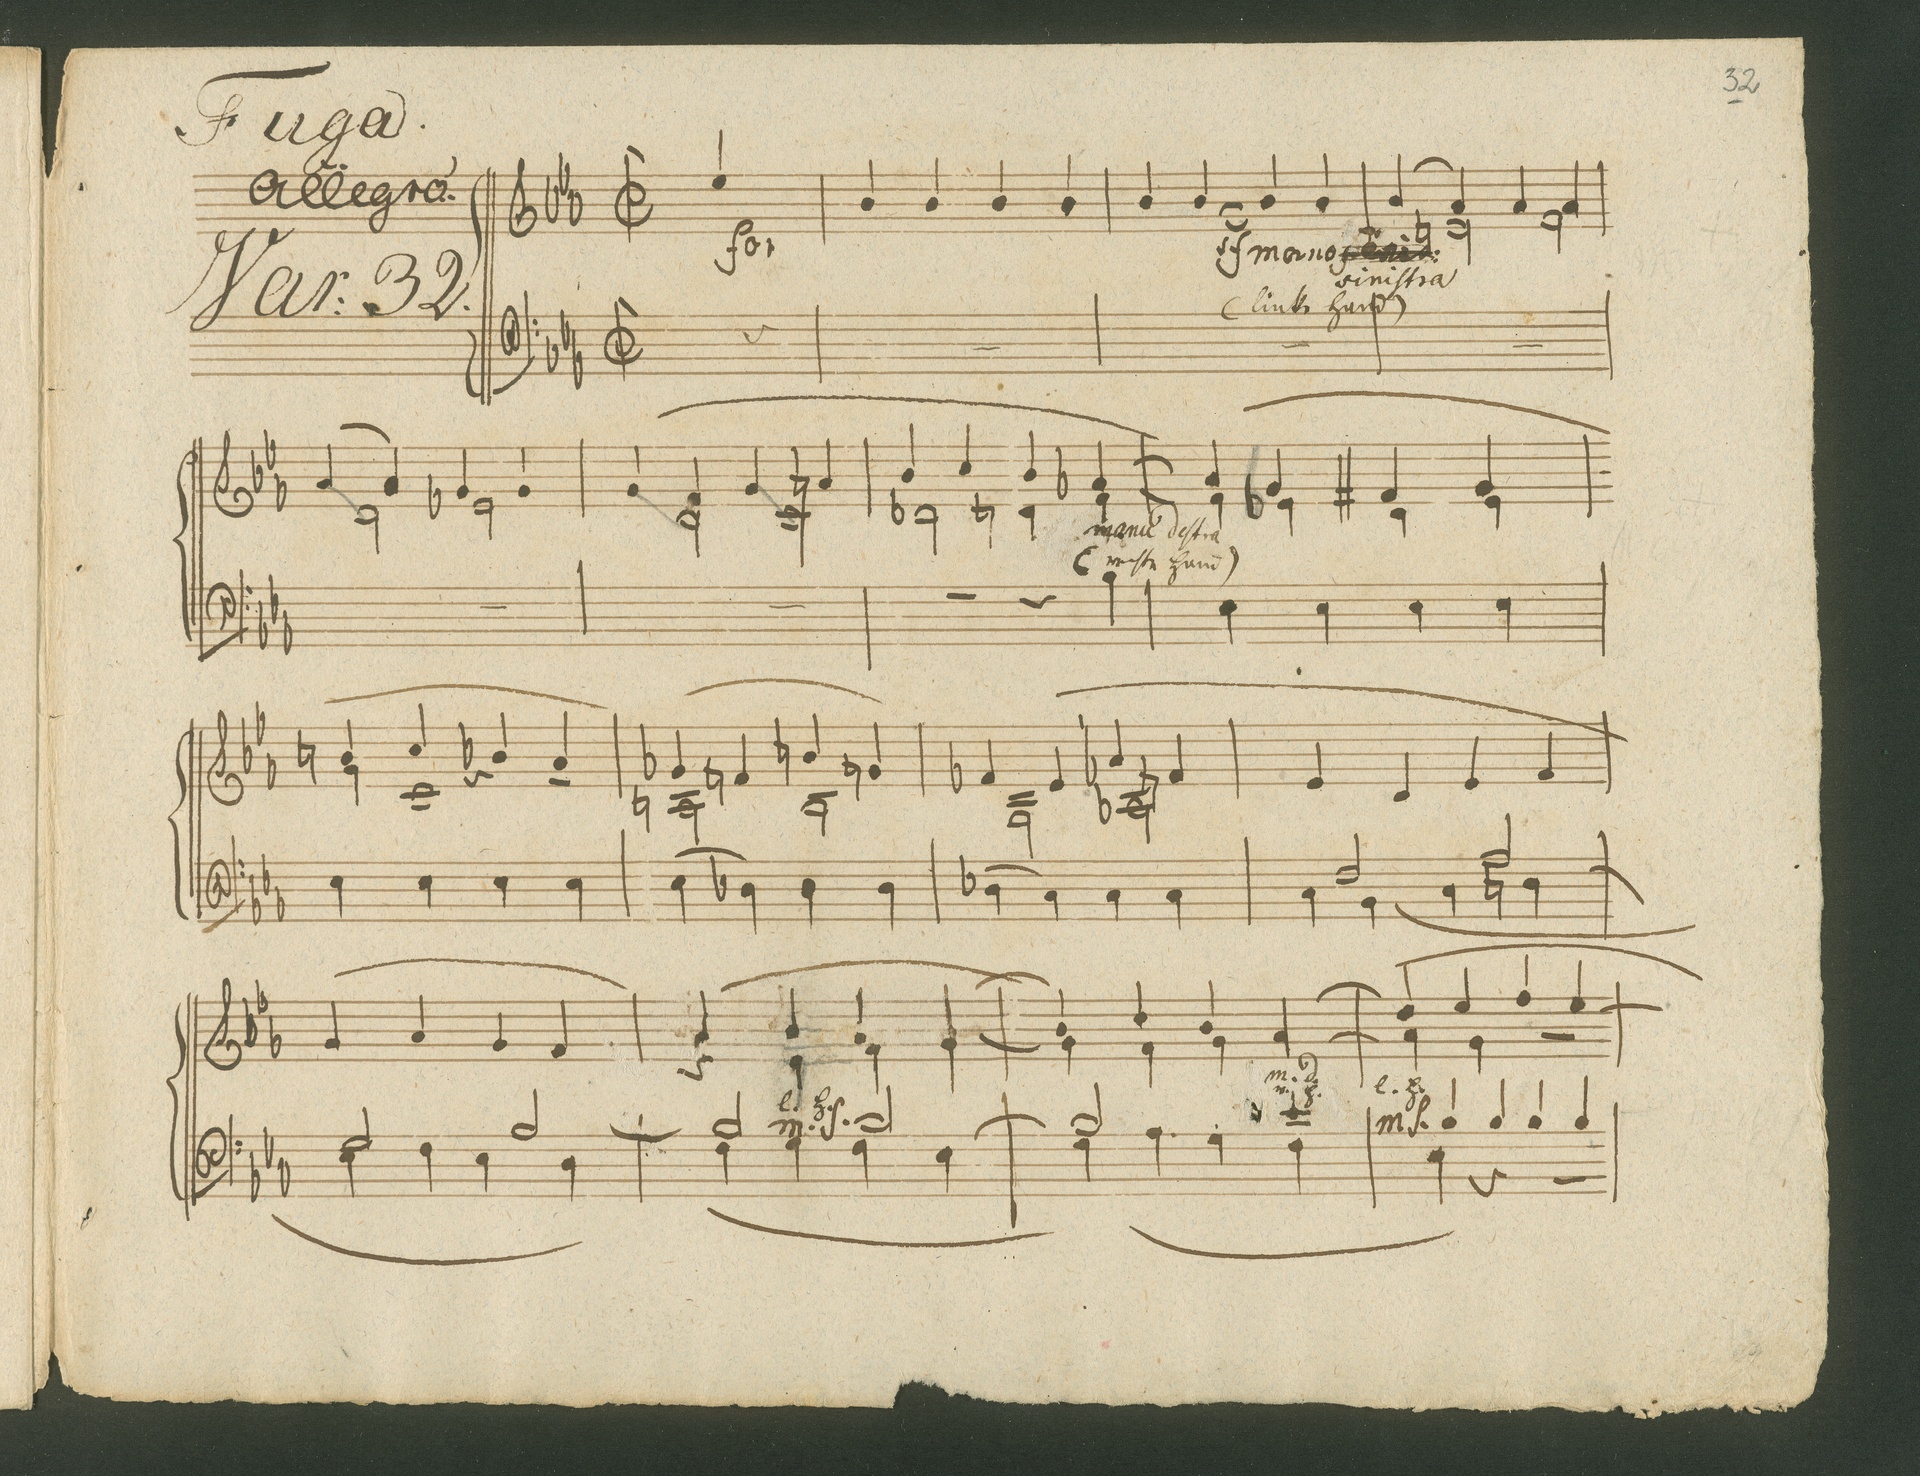 32
Fuga.
Allegro.
Var: 32.
for
sf mano
sinistra
(linke Hand)
manu destra
(rechte Hand)
m. d.
r. H.
l. H.
m. s.
l. H.
m s.